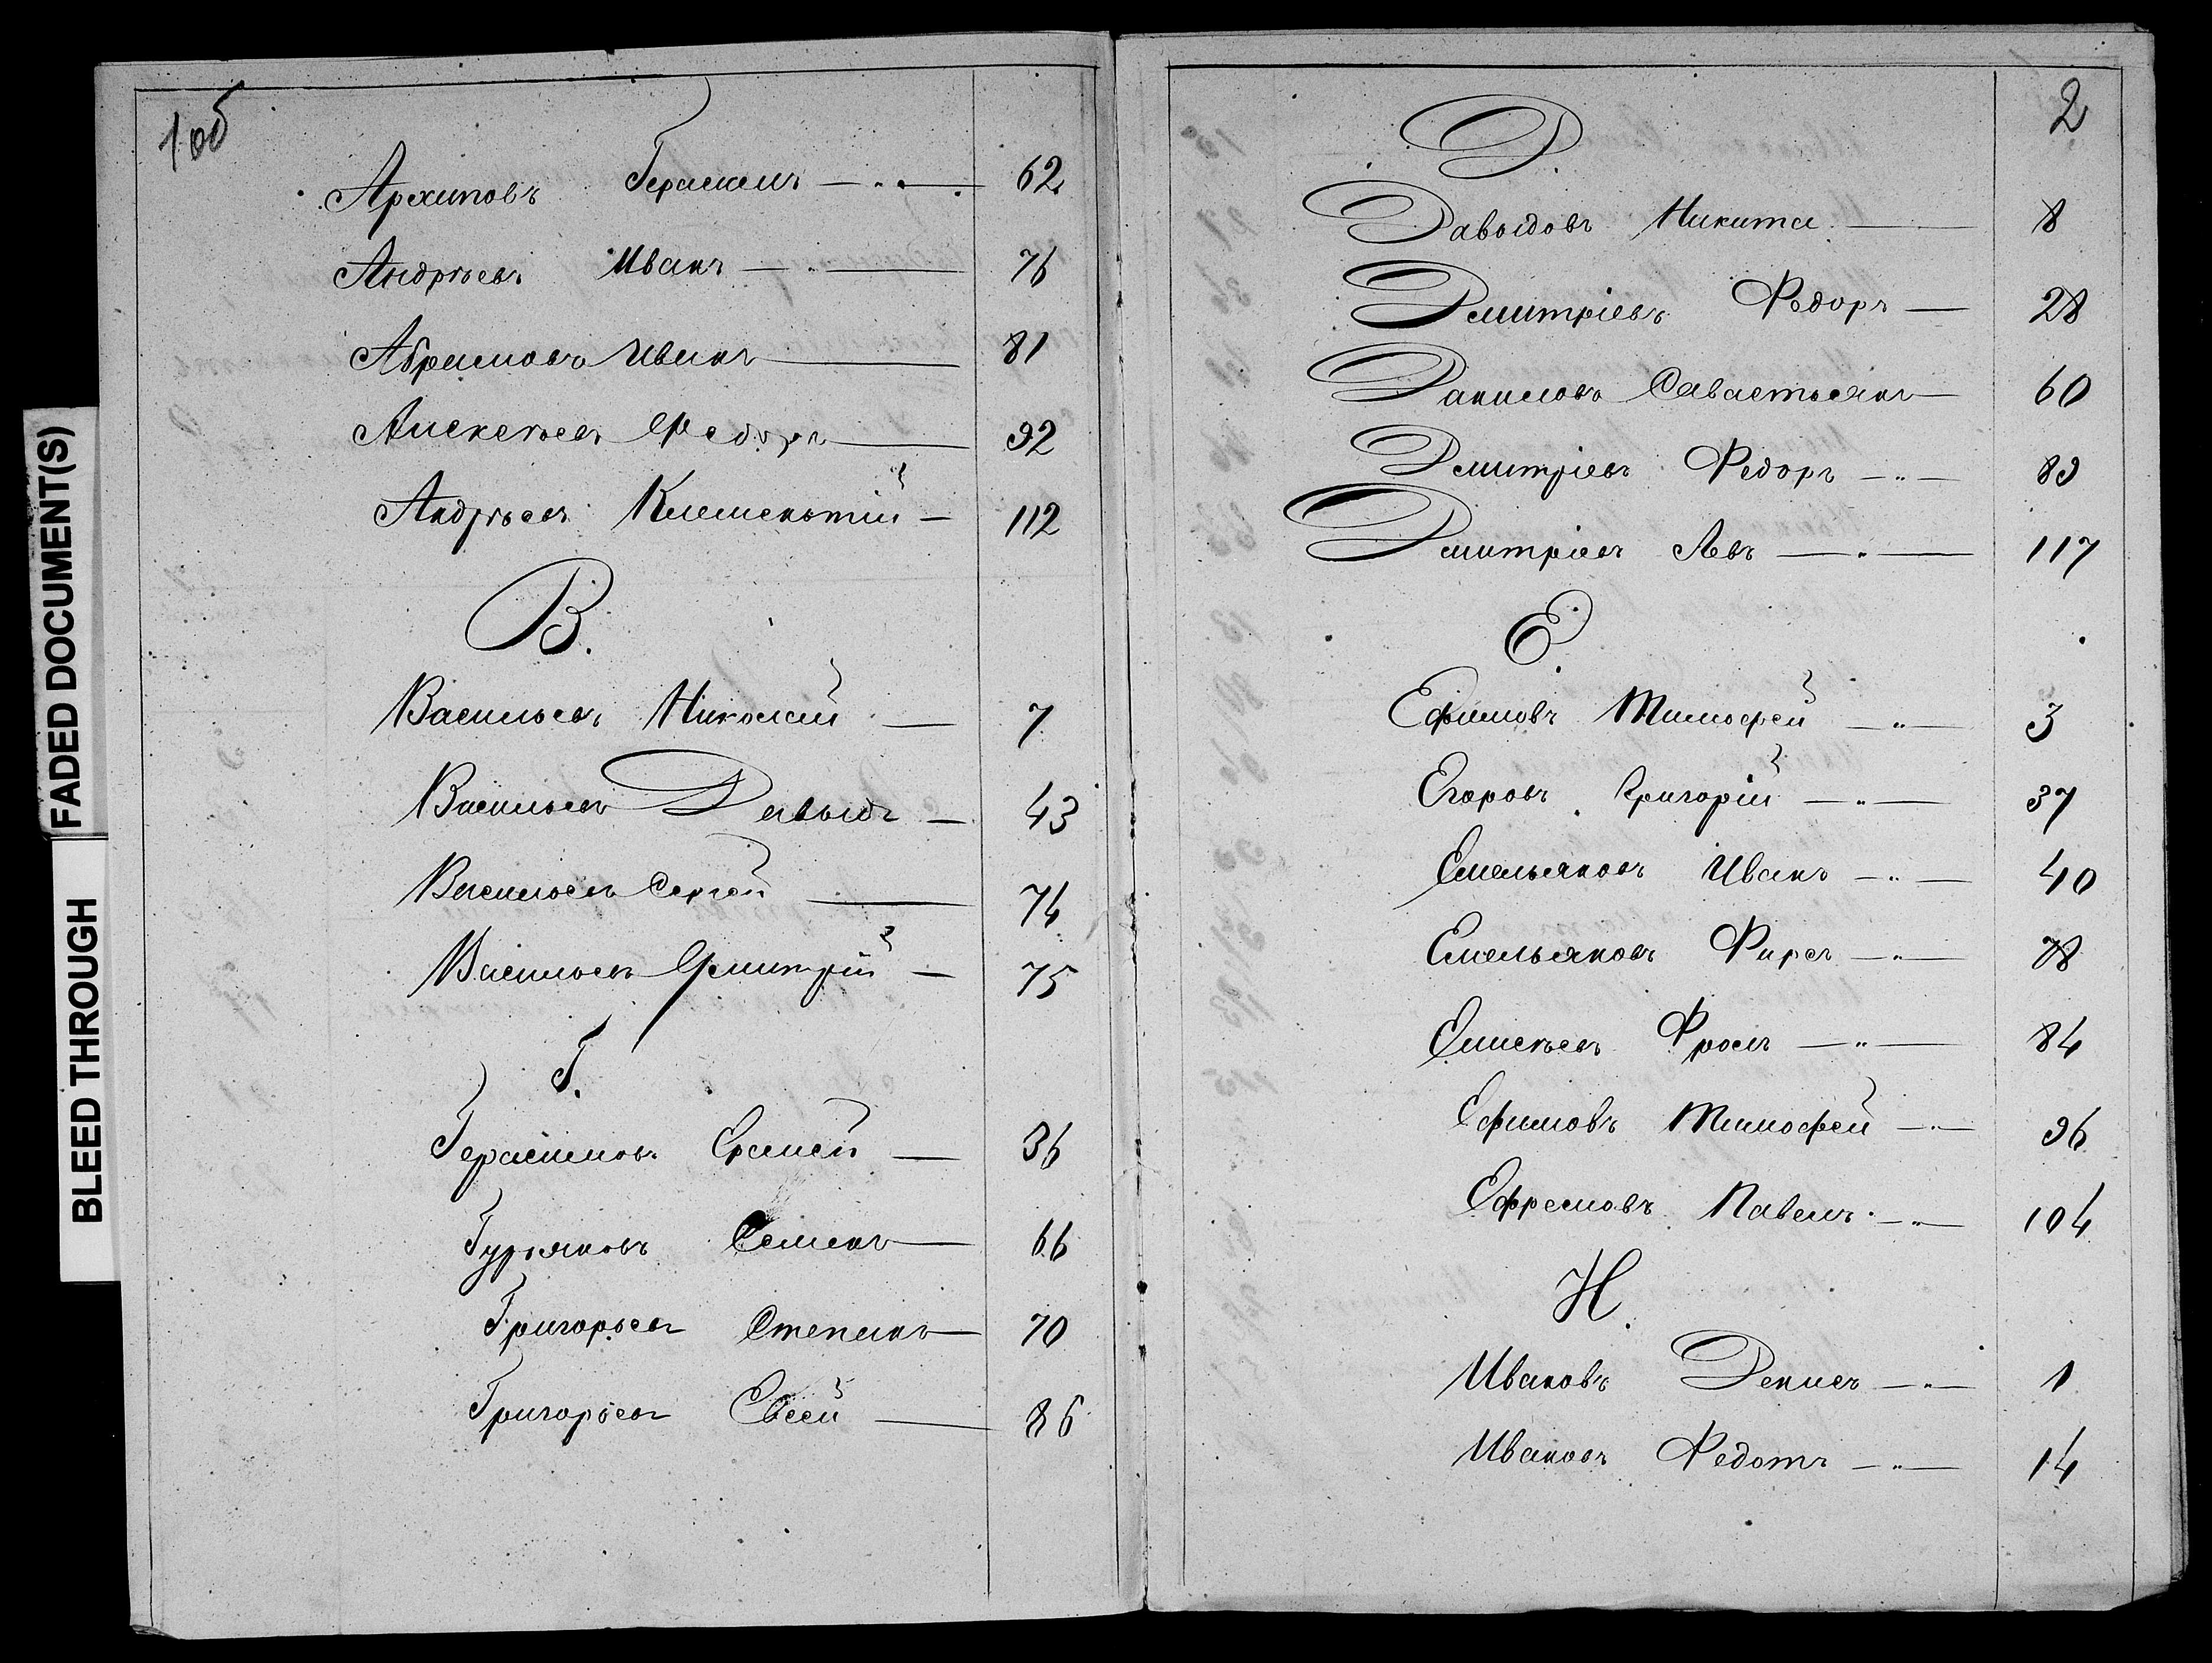 FADED DOCUMENT(S)
BLEED THROUGH
1 об
Архиповъ Герасимъ — " — 62
Андрѣевъ Иванъ — " — 76
Абрамовъ Иванъ — 81
Алексѣевъ Федоръ — 92
Андрѣевъ Клементій — 112
В.
Васильевъ Николай — 7
Васильевъ Давыдъ — 43
Васильевъ Сергей — 74
Васильевъ Дмитрій — 75
Г.
Герасимовъ Еремей — 36
Гурьяновъ Семенъ — 66
Григорьевъ Степанъ — 70
Григорьевъ Евсей — 86
2
Д.
Давыдовъ Никита — 8
Дмитріевъ Федоръ — 28
Даниловъ Савастьянъ — 60
Дмитріевъ Федоръ — " — 89
Дмитріевъ Левъ — " — 117
Е.
Ефимовъ Тимофей — " — 3
Егоровъ Григорій — " — 37
Емельяновъ Иванъ — " — 40
Емельяновъ Фирсъ — " — 78
Елисѣевъ Фролъ — " — 84
Ефимовъ Тимофей — " — 96
Ефремовъ Павелъ — " — 104
И.
Ивановъ Денисъ — " — 1
Ивановъ Федотъ — " — 14